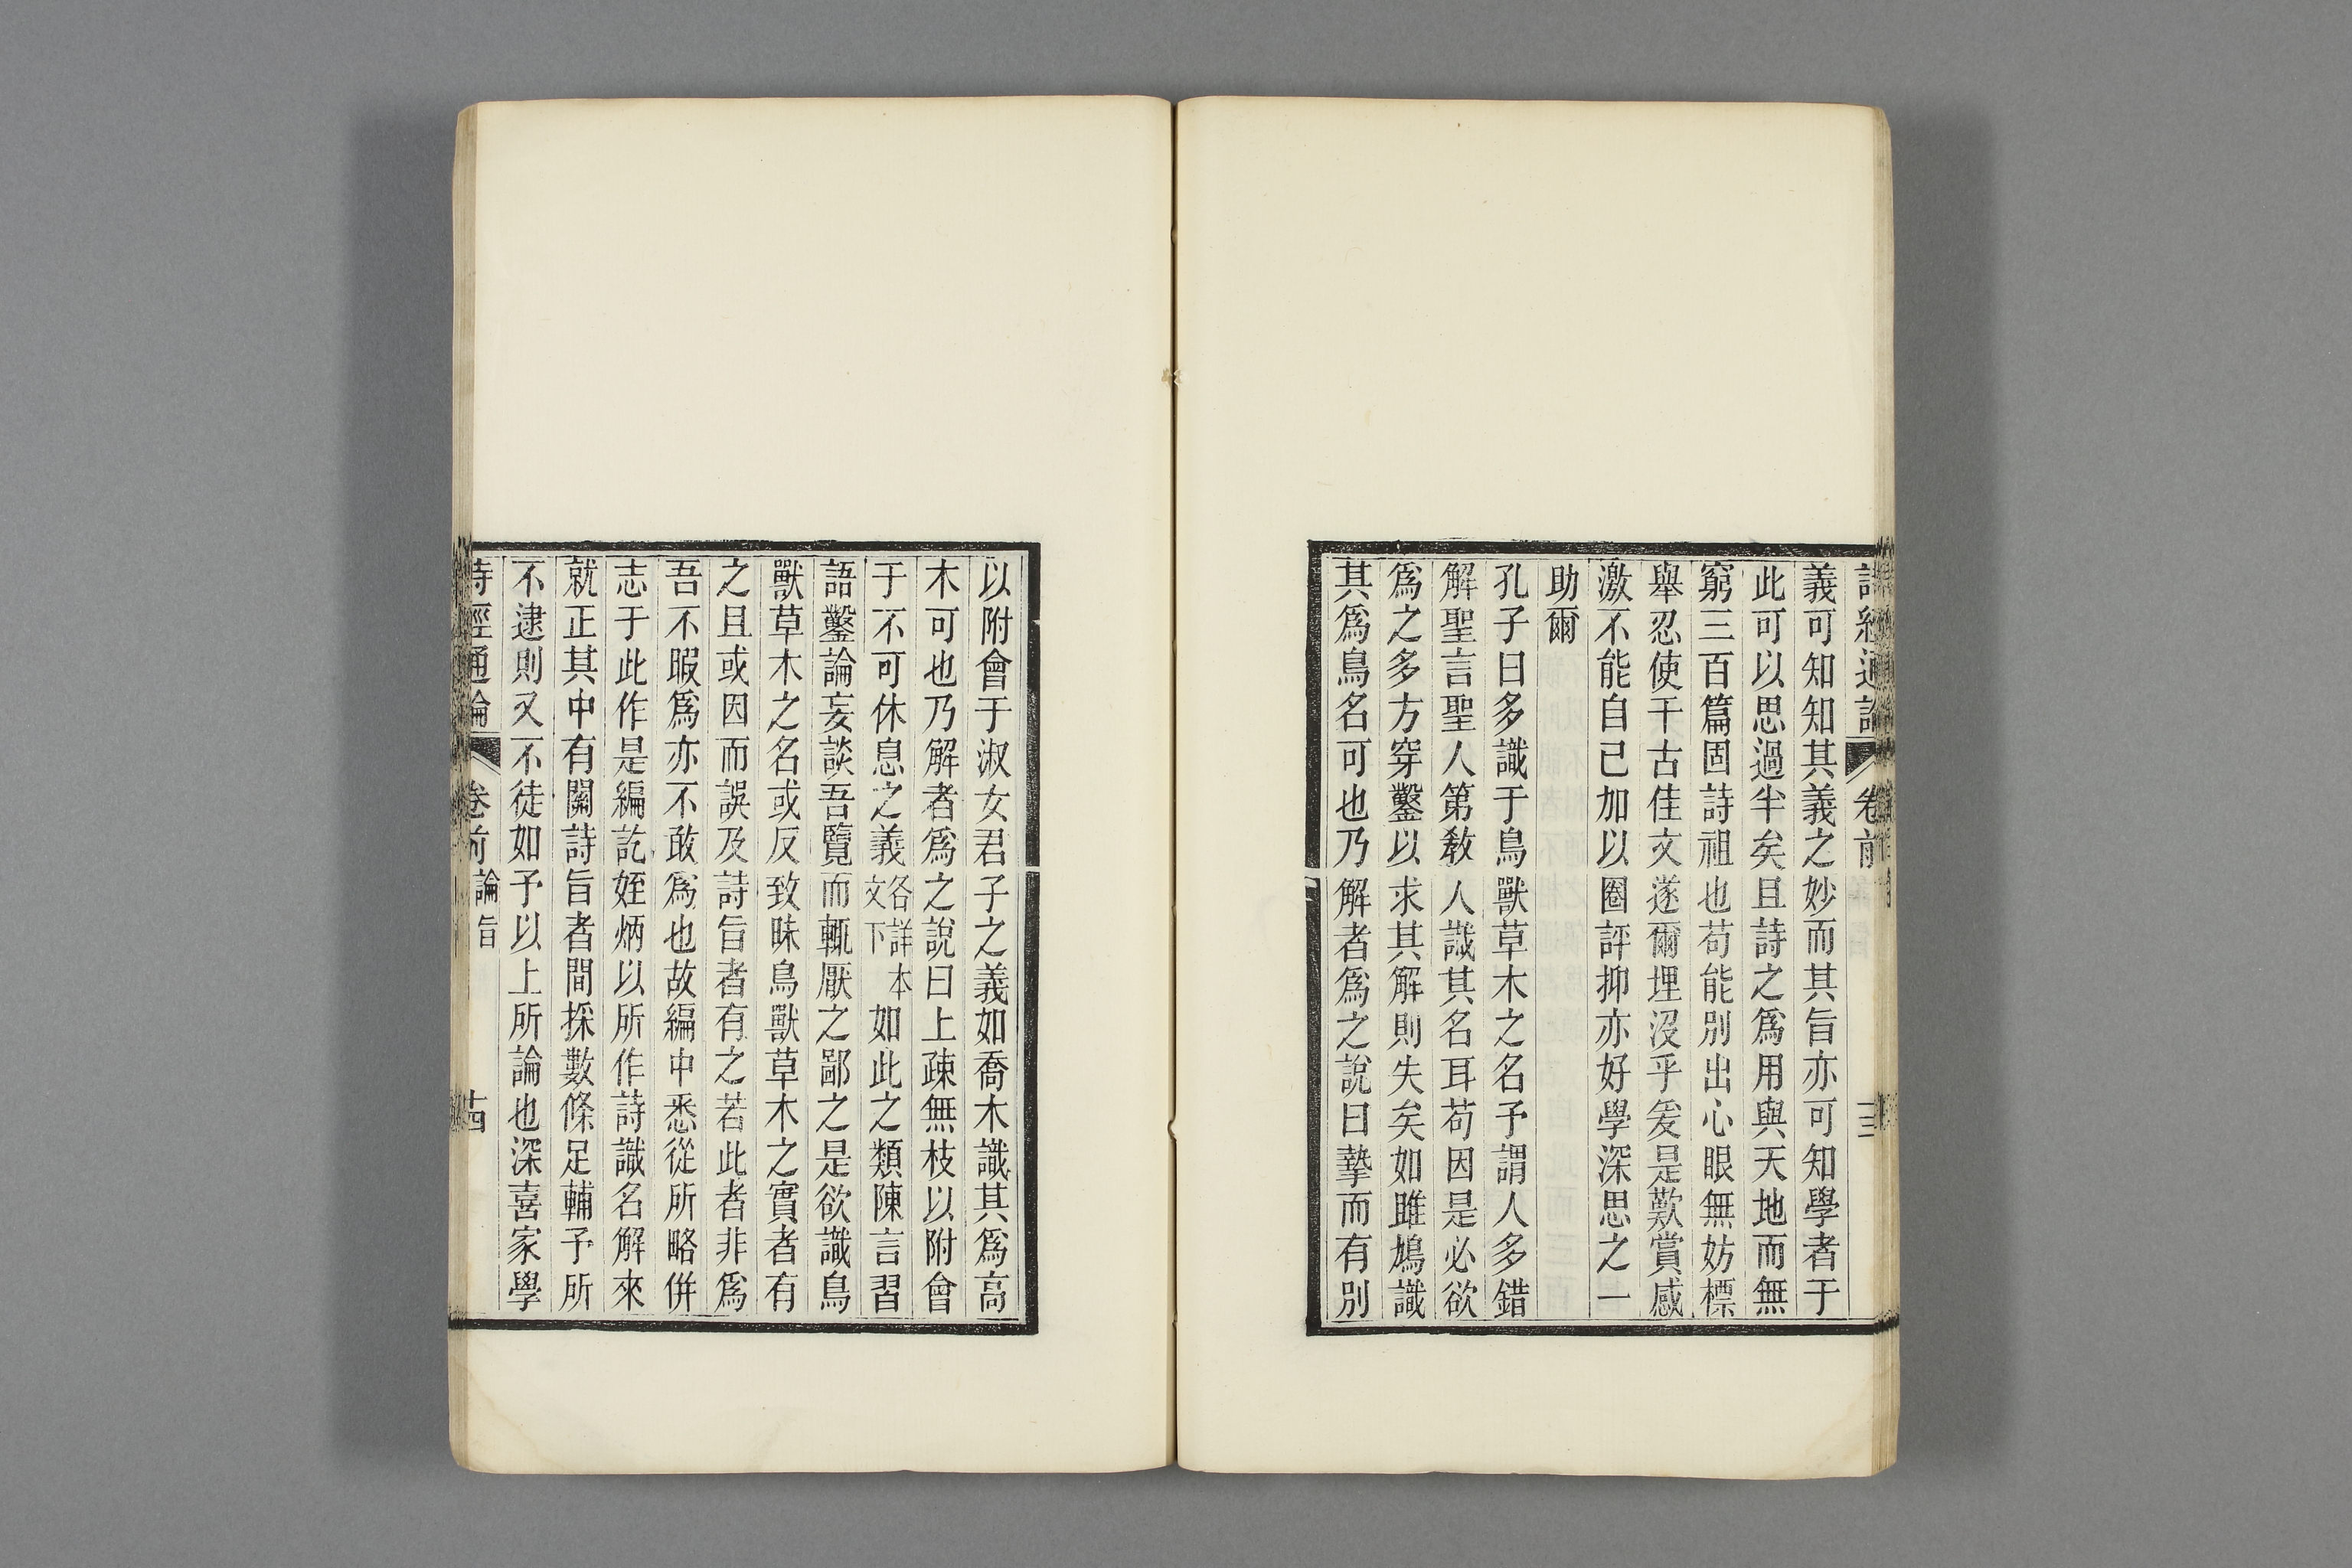 詩經通論 卷前 十三
義可知知其義之妙而其旨亦可知學者于
此可以思過半矣且詩之爲用與天地而無
窮三百篇固詩祖也苟能別出心眼無妨標
舉忍使千古佳文遂爾埋沒乎爰是歎賞感
激不能自已加以圈評抑亦好學深思之一
助爾
孔子曰多識于鳥獸草木之名予謂人多錯
解聖言聖人第敎人識其名耳苟因是必欲
爲之多方穿鑿以求其解則失矣如雎鳩識
其爲鳥名可也乃解者爲之說曰摯而有別
以附會于淑女君子之義如喬木識其爲高
木可也乃解者爲之說曰上疎無枝以附會
于不可休息之義各詳本文下如此之類陳言習
語鑿論妄談吾覽而輒厭之鄙之是欲識鳥
獸草木之名或反致昧鳥獸草木之實者有
之且或因而誤及詩旨者有之若此者非爲
吾不暇爲亦不敢爲也故編中悉從所略併
志于此作是編訖姪炳以所作詩識名解來
就正其中有關詩旨者間採數條足輔予所
不逮則又不徒如予以上所論也深喜家學
詩經通論 卷前 論旨 十四